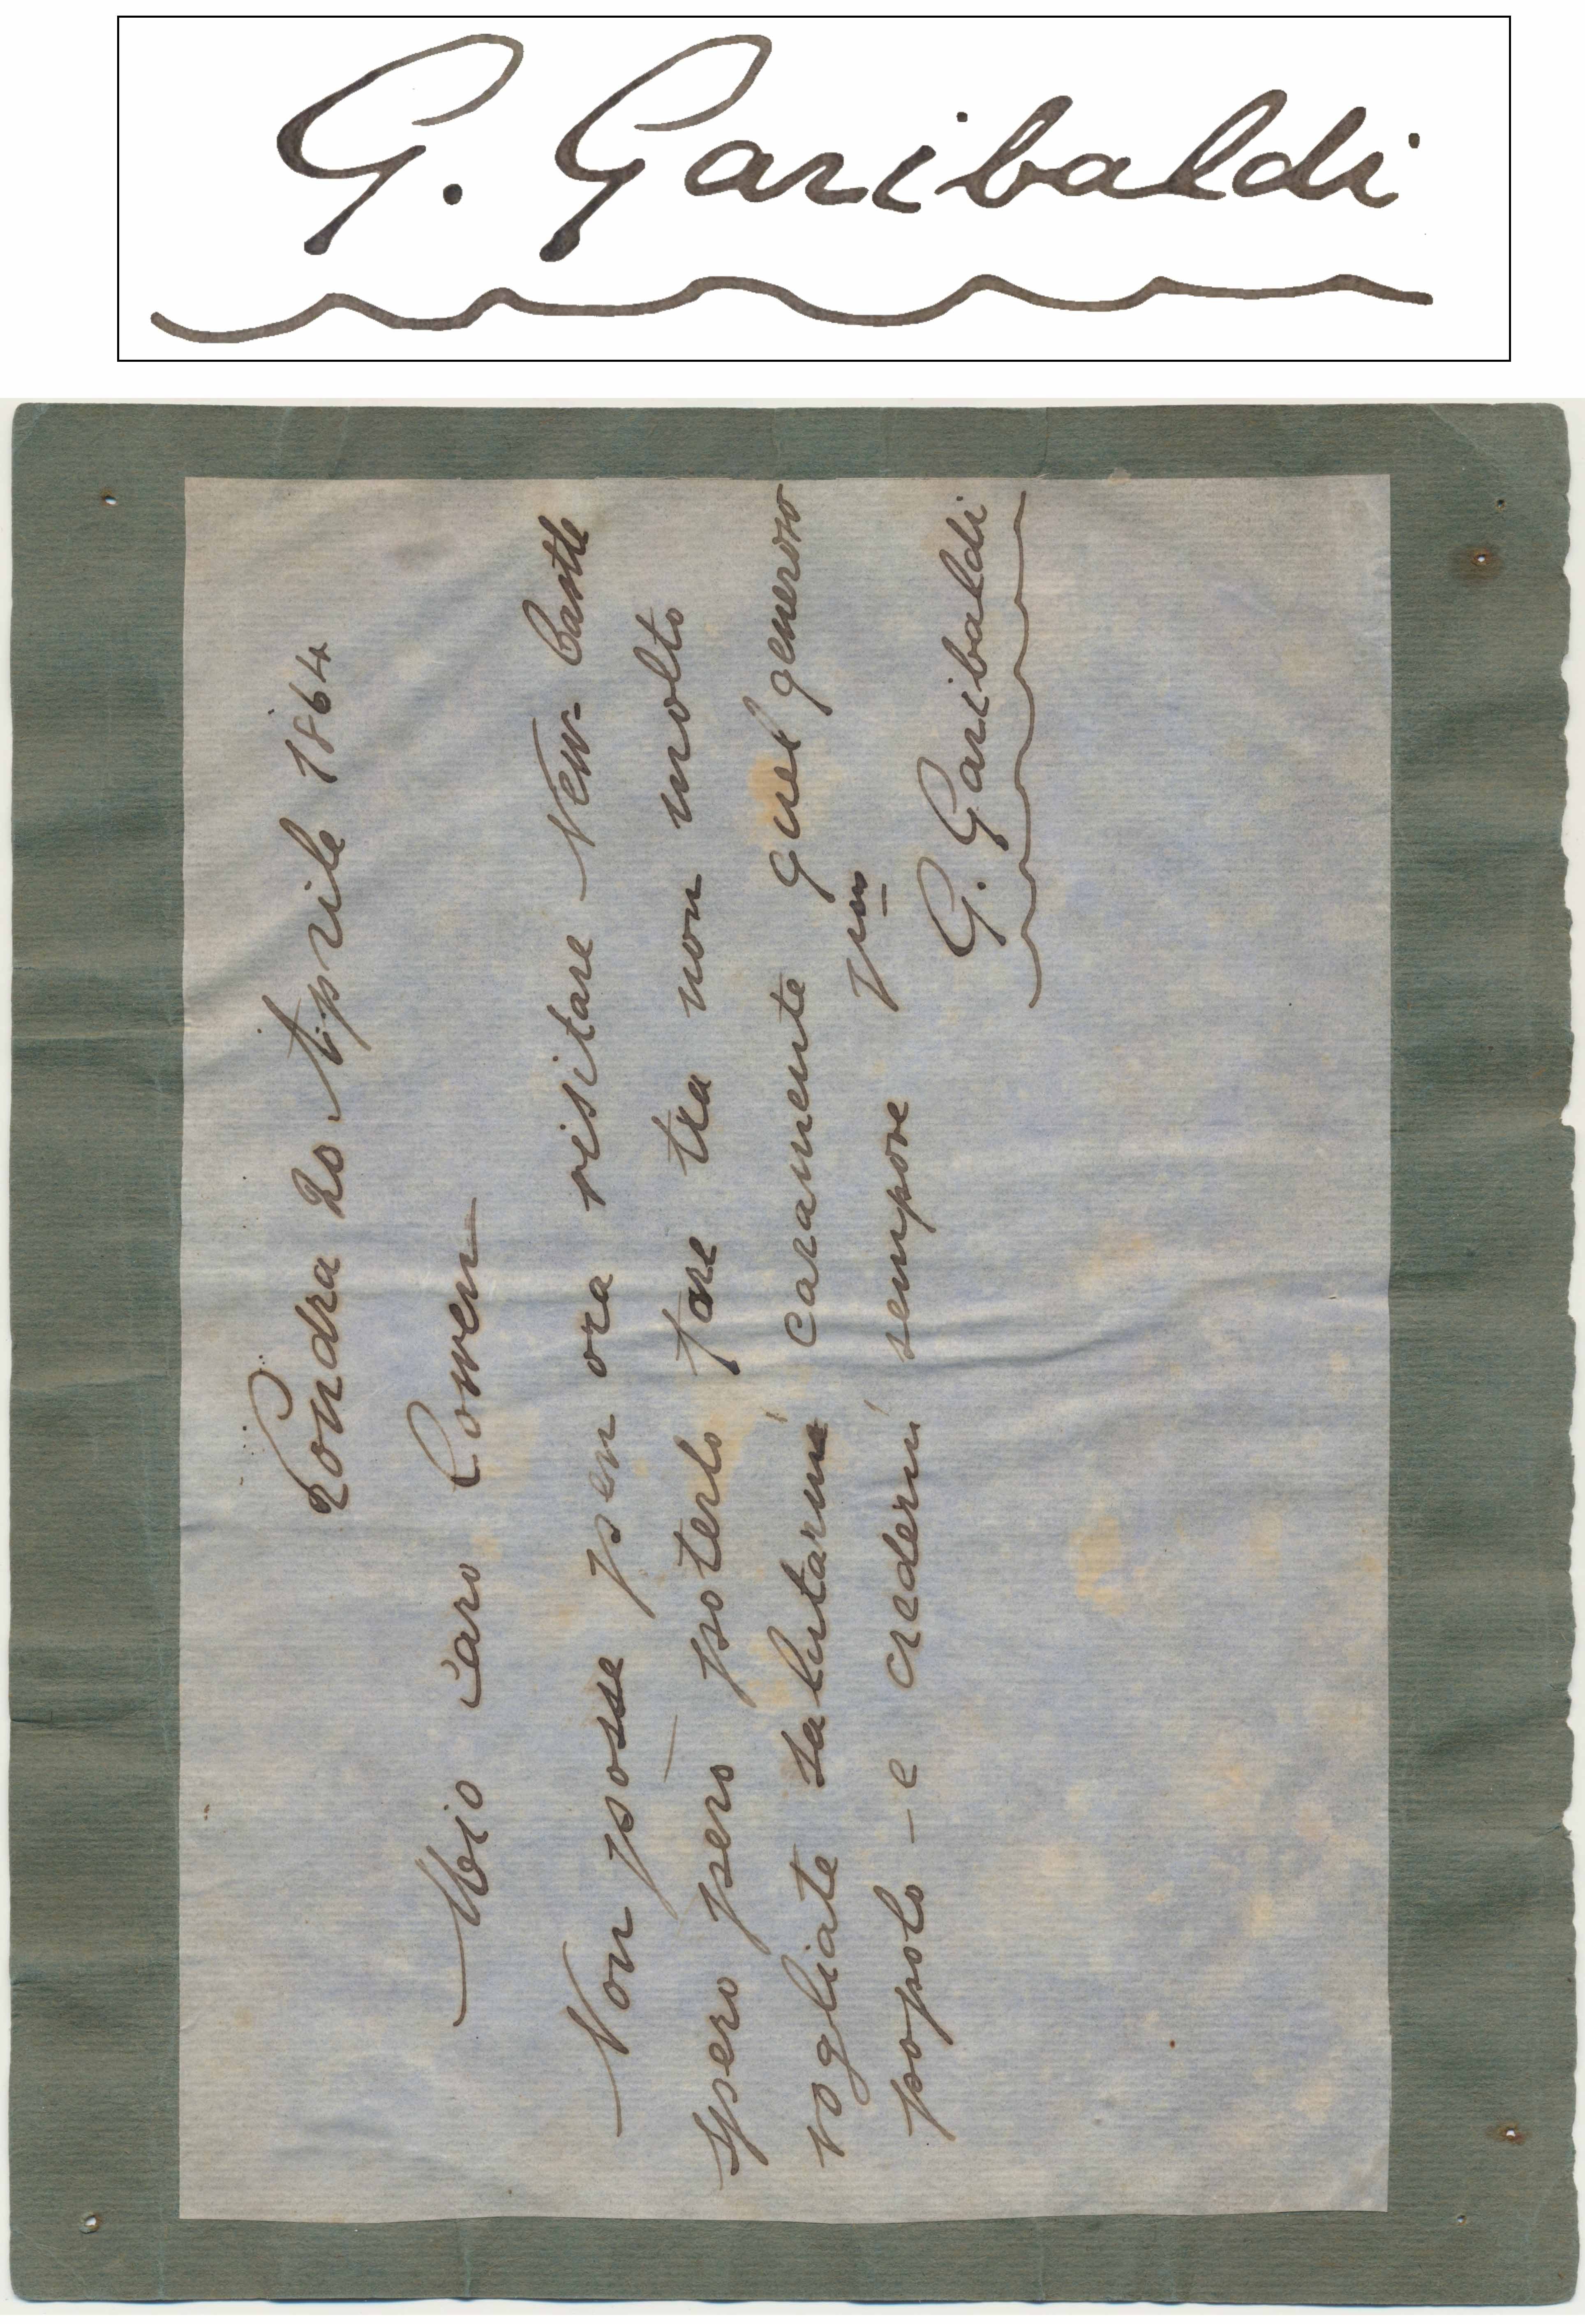 G. Garibaldi
Londra 20 Aprile 1864
Mio caro Cowen
Non posso per ora visitare New-Castle
spero però poterlo fare tra non molto
vogliate salutarmi caramente quel generoso
popolo - e credermi sempre
G. Garibaldi